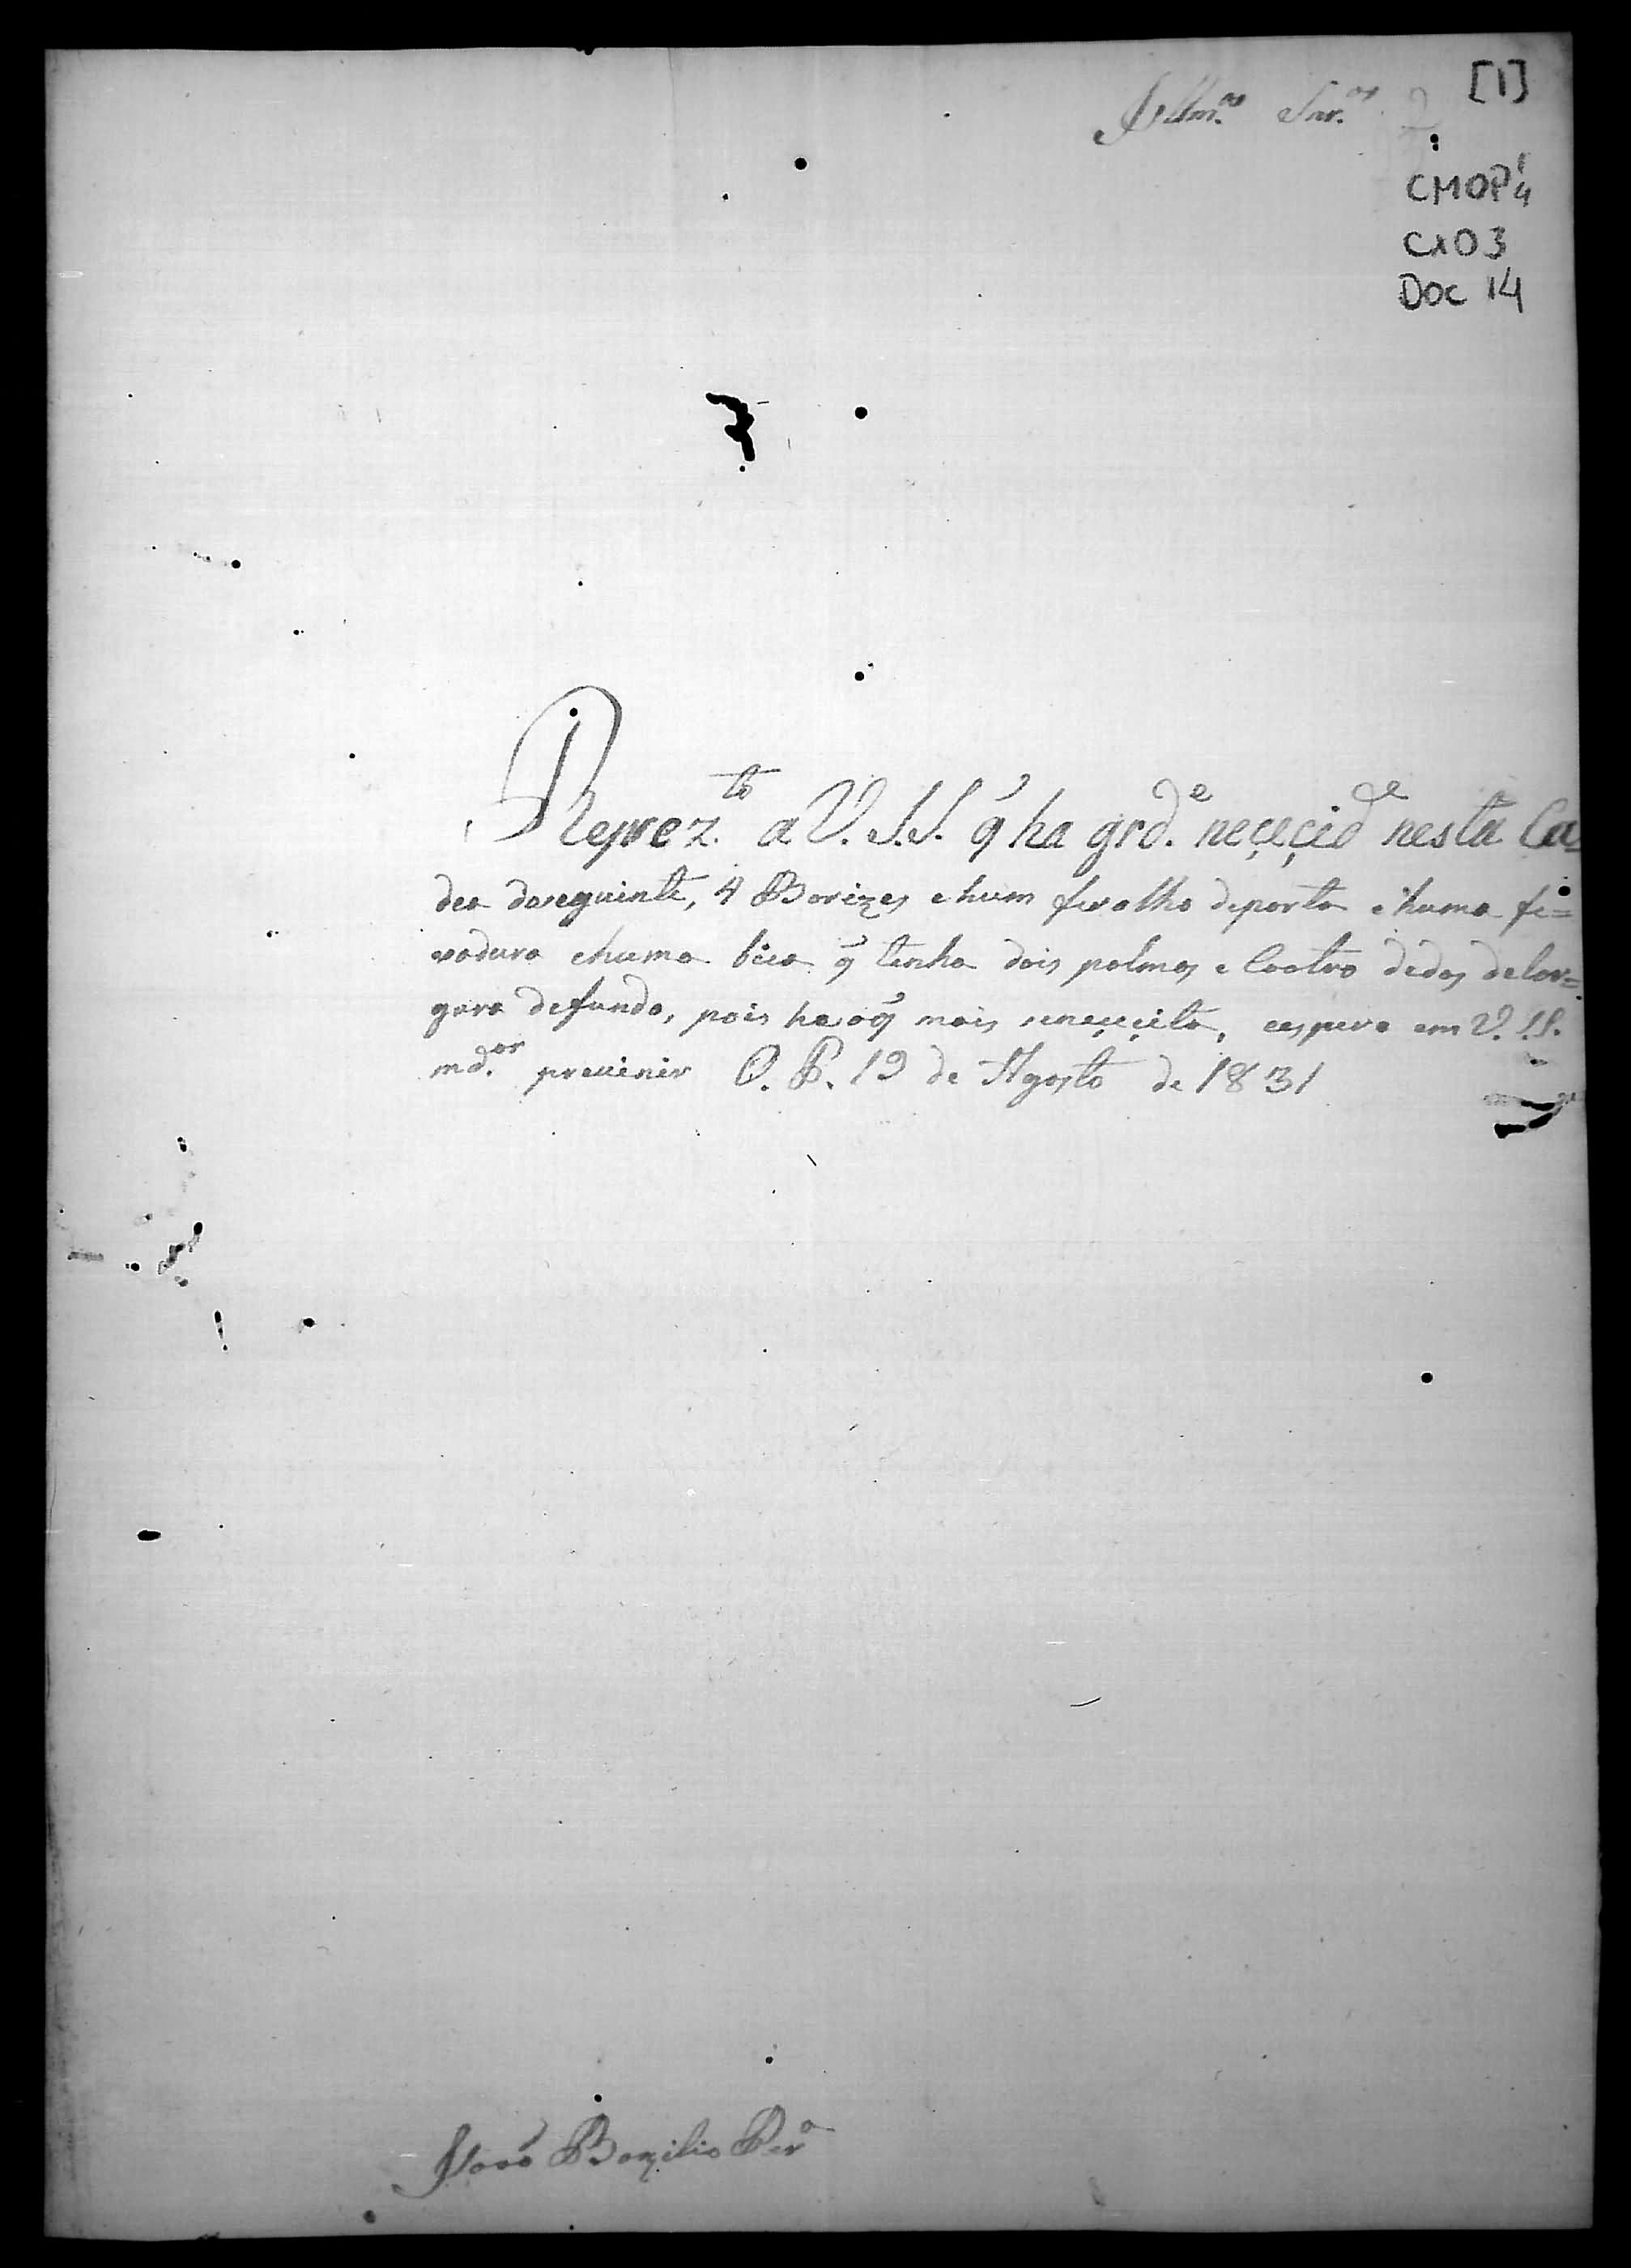 [1]
Illm.os Snr.es
CMOP 1/4
CX03
DOC 14
Reprez.to a V. S.S. q̃ ha grd.e neçeçid.e nesta Ca=
dea doseguinte, 4 Borizes e hum ferolho deporta e huma fe=
xadura ehuma bica q̃ tenha dois palmos e Coatro dedos delar=
gura defundo, pois he oq̃ mais seneçeçita, eespero em V. S.S.
md.or previnir O. P. 19 de Agosto de 1831
João Bazilio Per.a